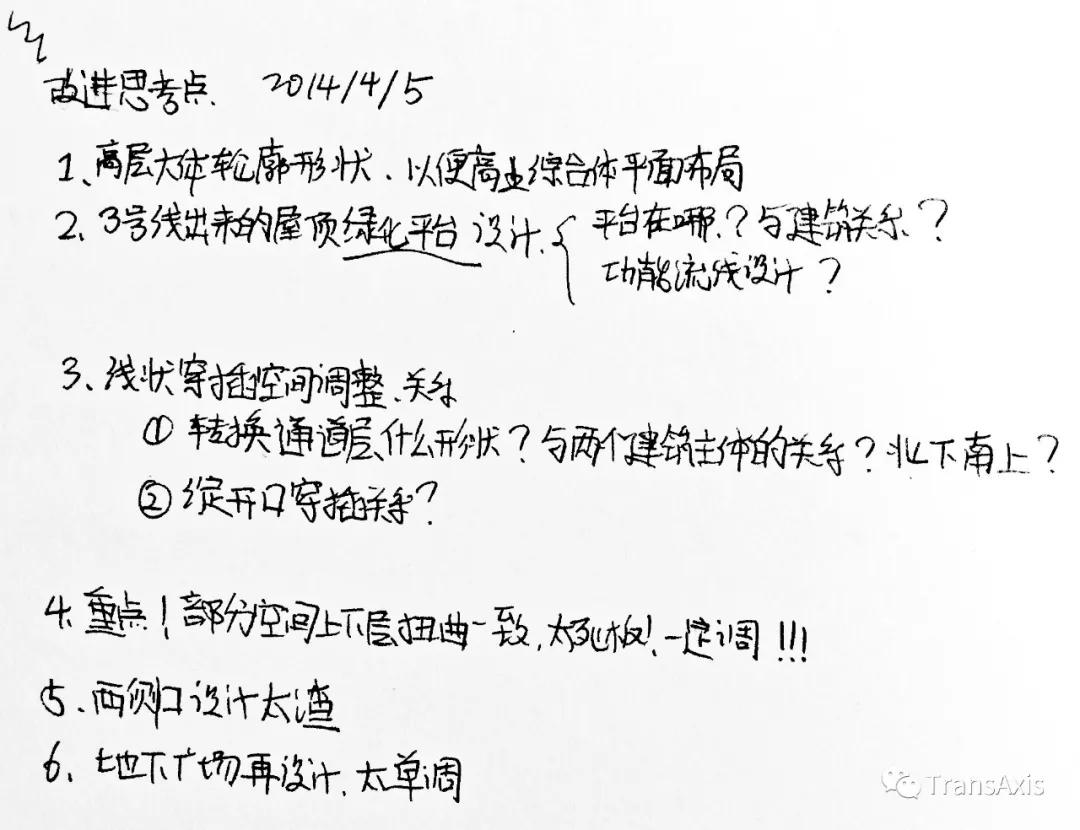 改进思考点. 2014/4/5
1、高层大体轮廓形状、以便商业综合体平面布局
2、3号线出来的屋顶绿化平台设计、{ 平台在哪?与建筑关系?
功能流线设计?
3、线状穿插空间调整、关系
① 转换通道层、什么形状?与两个建筑主体的关系?北下南上?
② 绽开口穿插关系?
4、重点!部分空间上下层扭曲一致,太死板!一定调!!!
5、西侧口设计太渣
6、地下广场再设计,太单调
TransAxis